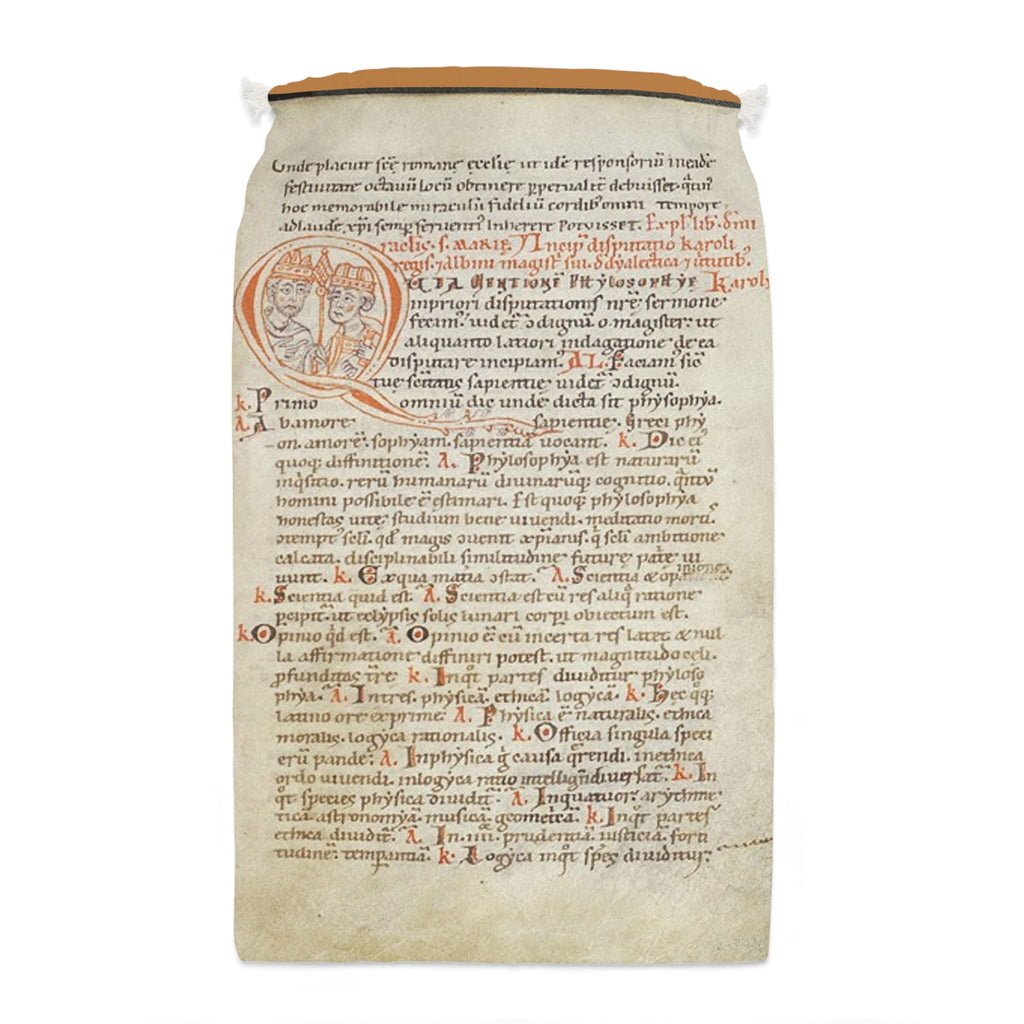 Unde placuit scę romanę ęcclię ut idē responsoriū in eadē
festivitate octavū locū obtinere ꝑpetualit debuisset. q̄tin
hoc memorabile miraculū fideliū cordib omni tempore
adlaudē xpi semp ferventi inherere potuisset. Expl lib. dni
raclis. s. MARIE. Incip disputatio karoli
regis. ⁊ albini magist sui. d dyalectica ⁊ virtutib.
QUIA MENTIONĒ PHYLOSOPHYE Karoli
in priori disputationis nrę sermone
fecim. videt ɔdignū o magister. ut
aliquanto latiori indagatione de ea
disputare incipiam. AL. Faciam sic
tuę scītatis sapientię videt ɔdignū.
k. Primo omniū dic unde dicta sit phẏsophẏa.
A. Ab amore sapientię. Greci phẏ
on. amorē. sophẏam. sapientiā vocant. k. Dic ei
quoq; diffinitionē. A. Phẏlosophẏa est naturarū
inq̇sitio. rerū humanarū divinarūq; cognitio. q̄ntū
homini possibile ē estimari. Est quoq; phẏlosophẏa
honestas vitę. studium bene vivendi. meditatio morti.
ɔtempt scli. qd magis ɔvenit xp̄ianis. q̇ scli ambitione
calcata. disciplinabili similitudine futurę patrię vi
vunt. k. Ex qua matia ɔstat. A. Scientia & opinione
k. Scientia quid est. A. Scientia est cū res aliq̄ ratione
ꝑcipit. ut eclẏpsis solis lunari corpi obiectum est.
k. Opinio q̇d est. A. Opinio ē. cū incerta res latet & nul
la affirmatione diffiniri potest. ut magnitudo cęli.
ꝓfunditas trę. k. Inq̇t partes dividitur phẏloso
phẏa. A. In tres. phẏsicā. ethicā. logẏcā. k. Hec q̇q;
latino ore exprime. A. Phẏsica ē naturalis. ethica
moralis. logẏca rationalis. k. Officia singula speci
erū pande. A. In phẏsica q̄ causa q̄rendi. in ethica
ordo vivendi. in logẏca ratio intelligndi versat. k. In
q̇t species phẏsica dividit. A. In quatuor. arẏthme
ticā. astronomẏā. musicā. geometricā. k. Inq̇t partes
ethica dividit. A. In. iiii. prudentiā. iusticiā. forti
tudinē. temꝑantiā. k. Logẏca inq̇t spēs dividitur.